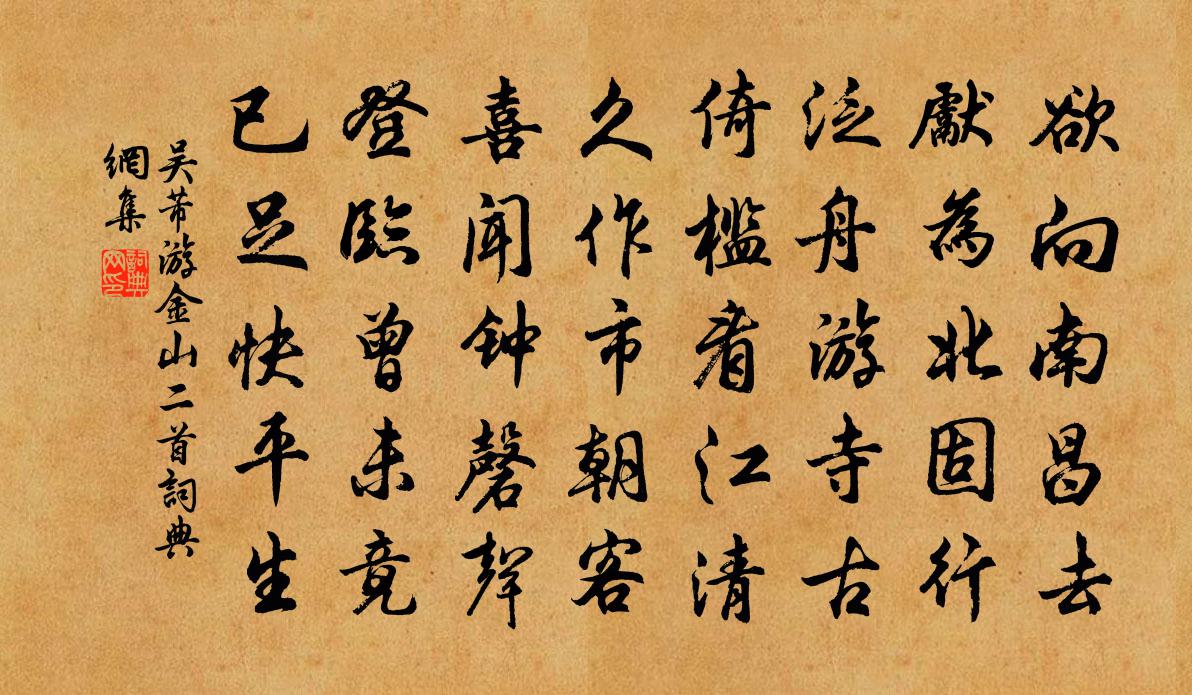 欲向南昌去
獻為北固行
泛舟游寺古
倚檻看江清
久作市朝客
喜聞钟磬聲
登臨曾未竟
已足快平生
吴芾游金山二首詞典
網集
詞典
网印